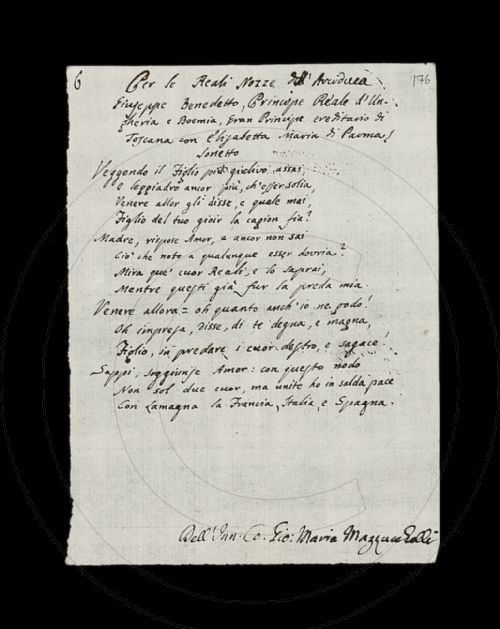 6
176
Per le Reali Nozze dell' Arciduca
Giuseppe Benedetto, Principe Reale d'Un-
gheria e Boemia, Gran Principe ereditario di
Toscana con Elisabetta Maria di Parma
Sonetto
Veggendo il Figlio più giulivo assai,
e leggiadro ancor più, ch'esser solia,
Venere allor gli disse, e quale mai,
Figlio del tuo gioir la cagion fia?
Madre, rispose Amor, e ancor non sai
Ciò che noto a qualunque esser dovria?
Mira que' cuor Reali, e lo saprai,
Mentre questi già fur la preda mia.
Venere allora = oh quanto anch'io ne godo!
Oh impresa, disse, di te degna, e magna,
Figlio, in predare i cuor destro, e sagace!
Sappi, soggiunse Amor: con questo nodo
Non sol due cuor, ma unite ho in salda pace
Con Lamagna la Francia, Italia, e Spagna.
Dell' Co. Gio: Maria Mazzucchelli